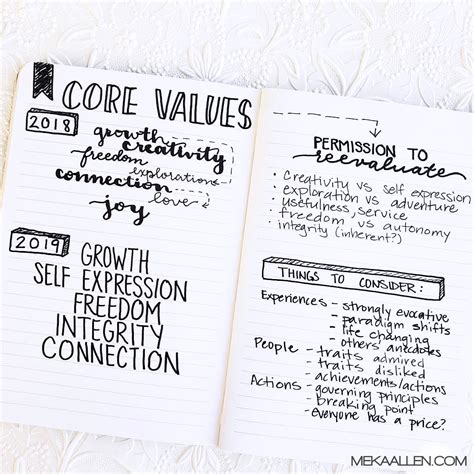 CORE VALUES
2018
growth
creativity
freedom
exploration
connection
love
joy
2019
GROWTH
SELF EXPRESSION
FREEDOM
INTEGRITY
CONNECTION
PERMISSION TO
reevaluate
• creativity vs self expression
• exploration vs adventure
• usefulness, service
• freedom vs autonomy
• integrity (inherent?)
THINGS TO CONSIDER:
Experiences - strongly evocative
- paradigm shifts
- life changing
- others' anecdotes
People - traits admired
- traits disliked
- achievements/actions
Actions - governing principles
- breaking point
- everyone has a price?
MEKAALLEN.COM